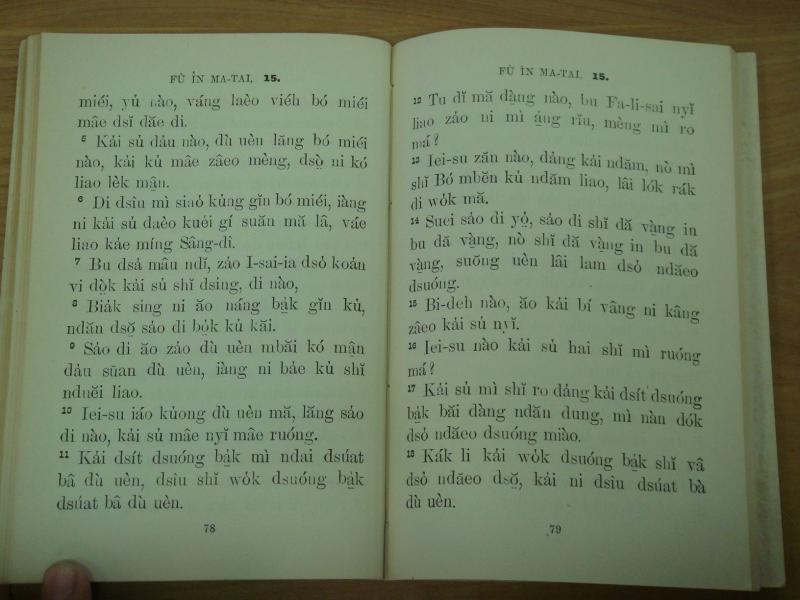 FÙ ÌN MA-TAI, 15.
miéi, yủ nào, váng laèo viéh bó miéi
mâe dsĭ dăe di.
5 Kải sủ dảu nào, dù uèn lăng bó miéi
nào, kải kủ mâe zâeo mèng, dsọ̀ ni kó
liao lèk mận.
6 Di dsîu mì siaỏ kủng gĭn bó miéi, iàng
ni kải sủ daèo kuéi gí suăn mă lâ, váe
liao kảe míng Sâng-dì.
7 Bu dsả mâu ndĭ, záo I-sai-ia dsỏ koán
vi dọ̀k kải sủ shĭ dsing, di nào,
8 Biảk sing ni ăo náng bạ́k gĭn kủ,
ndăn dsọ̆ sảo di bọ́k kủ kăi.
9 Sảo di ăo zảo dù uèn mbăi kó mận
dảu sūan dù uèn, iàng ni bảe kủ shĭ
nduĕi liao.
10 Iei-su iáo kủong dù uèn mă, lăng sảo
di nào, kải sủ mâe nyĭ mâe ruóng.
11 Kải dsít dsuóng bạ́k mì ndai dsúat
bâ dù uèn, dsîu shĭ wỏk dsuóng bạ́k
dsúat bâ dù uèn.
78
FÙ ÌN MA-TAI, 15.
12 Tu dĭ mă dạ̀ng nào, bu Fa-li-sai nyĭ
liao zảo ni mì ạ́ng rĭu, mèng mì ro
má?
13 Iei-su zăn nào, dảng kải ndăm, nò mì
shĭ Bó mbĕn kủ ndăm liao, lâi lók rák
di wỏk mă.
14 Suei sảo di yọ̉, sảo di shĭ dă vàng in
bu dă vạ̀ng, nò shĭ dă vàng in bu dă
vạ̀ng, suŏng uèn lâi lam dsỏ ndăeo
dsuóng.
15 Bi-deh nào, ăo kải bí vâng ni kâng
zâeo kải sủ nyĭ.
16 Iei-su nào kải sủ hai shĭ mì ruóng
má?
17 Kải sủ mì shĭ ro dảng kải dsít dsuóng
bạ́k băi dàng ndăn dung, mì nàn dók
dsỏ ndăeo dsuóng miào.
18 Kák li kải wỏk dsuóng bạ́k shĭ vâ
dsỏ ndăeo dsọ̆, kải ni dsîu dsúat bà
dù uèn.
79